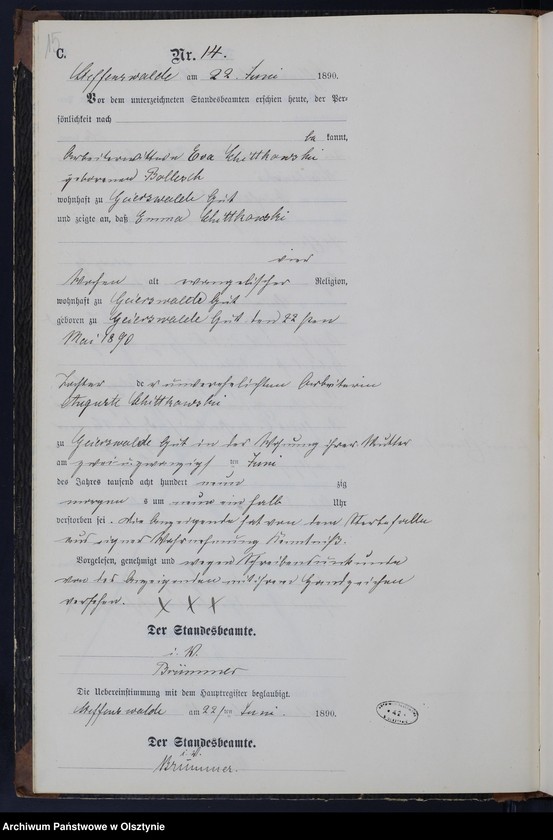 15
C.
Nr. 14.
Steffenswalde am 22 Juni 1890.
Vor dem unterzeichneten Standesbeamten erschien heute, der Per-
sönlichkeit nach
be kannt,
Arbeiterwittwe Eva Schittkowski
geborene
wohnhaft zu Geierswalde Gut
und zeigte an, daß Emma Schittkowski
vier
Wochen alt evangelischer Religion,
wohnhaft zu Geierswalde Gut
geboren zu Geierswalde Gut den 22 sten
Mai 1890
Tochter der unverehelichten Arbeiterin
Auguste Schittkowski
zu Geierswalde Gut in der Wohnung ihrer Mutter
am zweiundzwanzigsten Juni
des Jahres tausend acht hundert neun zig
morgens um neun ein halb Uhr
verstorben sei. Die Anzeigende hat von dem Sterbefalle
aus eigner Wahrnehmung Kenntniß.
Vorgelesen, genehmigt und wegen Schreibensunkunde
von der Anzeigenden mit ihrem Handzeichen
versehen. X X X
Der Standesbeamte.
i. V.
Brümmer
Die Uebereinstimmung mit dem Hauptregister beglaubigt.
Steffenswalde am 22 ten Juni. 1890.
Der Standesbeamte.
i. V.
Brümmer.
Archiwum Państwowe w Olsztynie